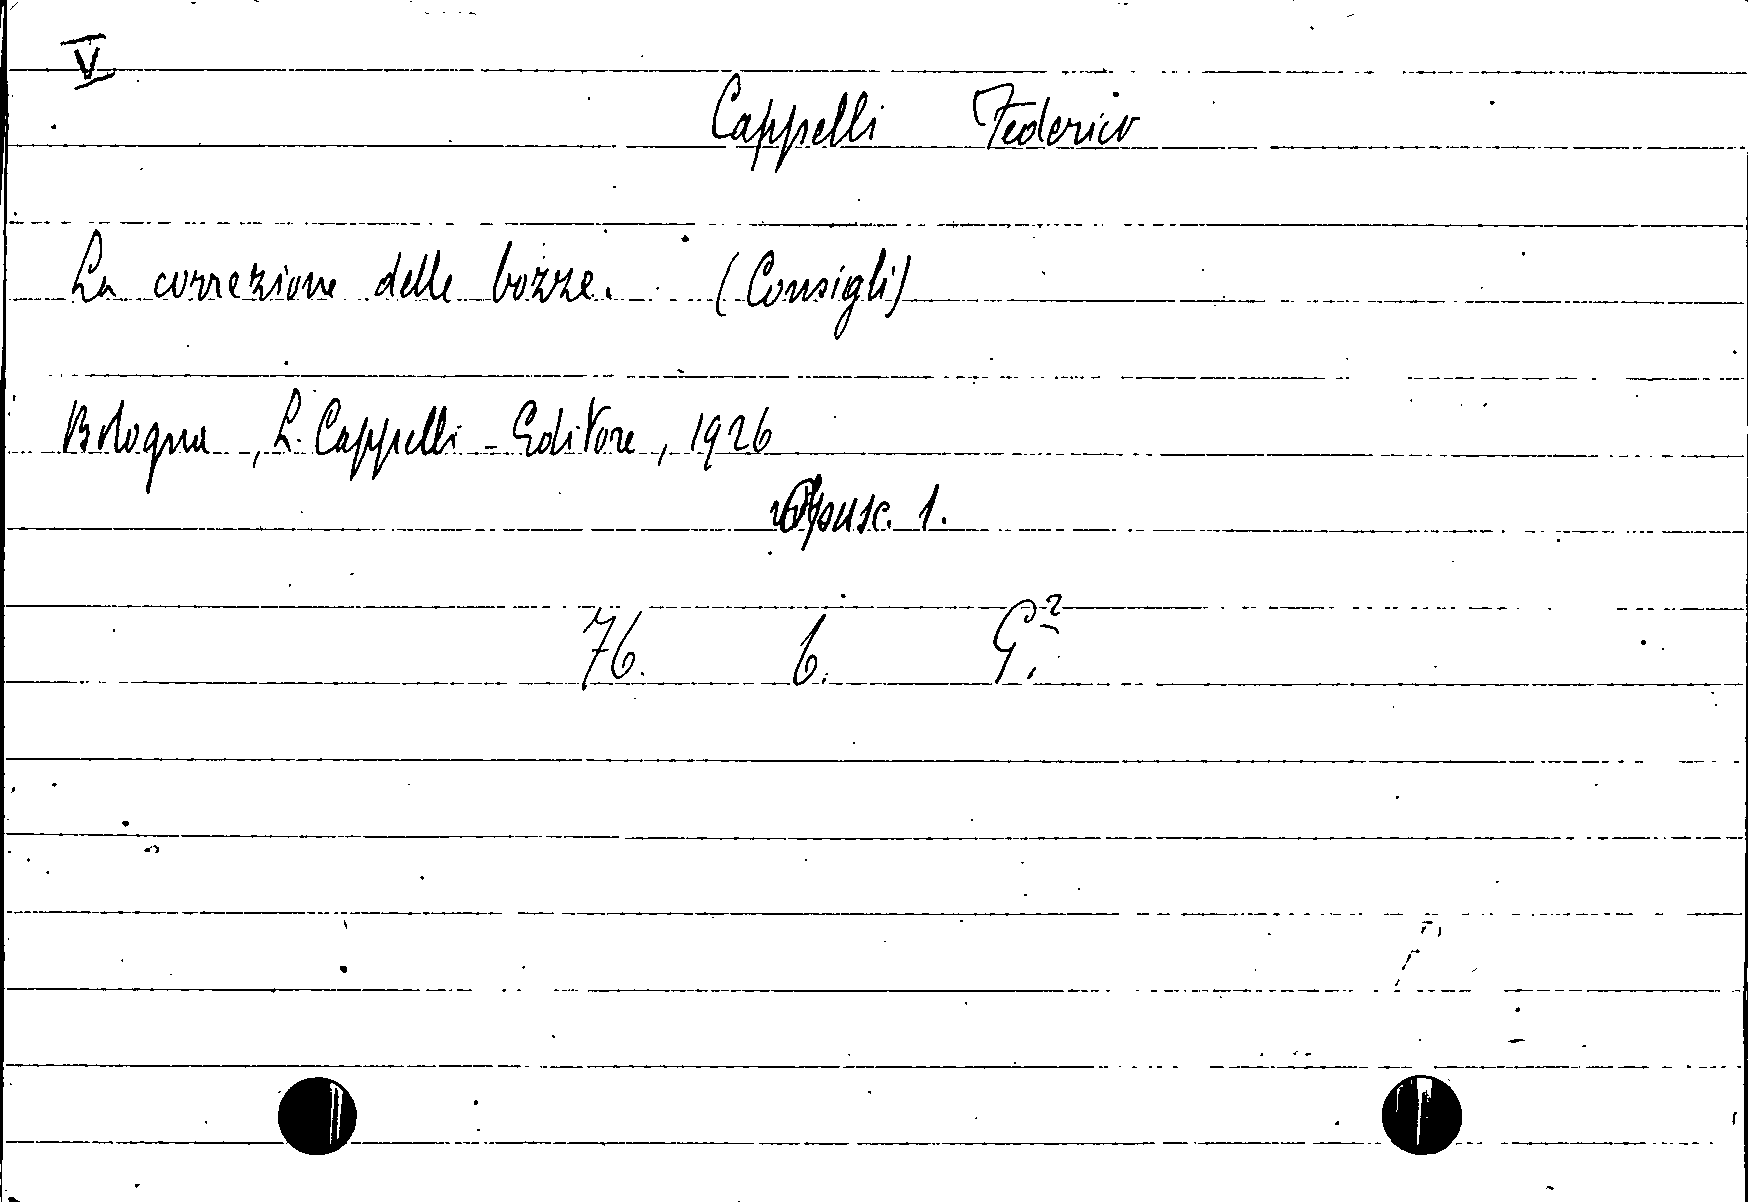 V
Cappelli Federico
La correzione delle bozze. (Consigli)
Bologna, L. Cappelli - Editore, 1926
Opusc. 1.
76. 6. G.²